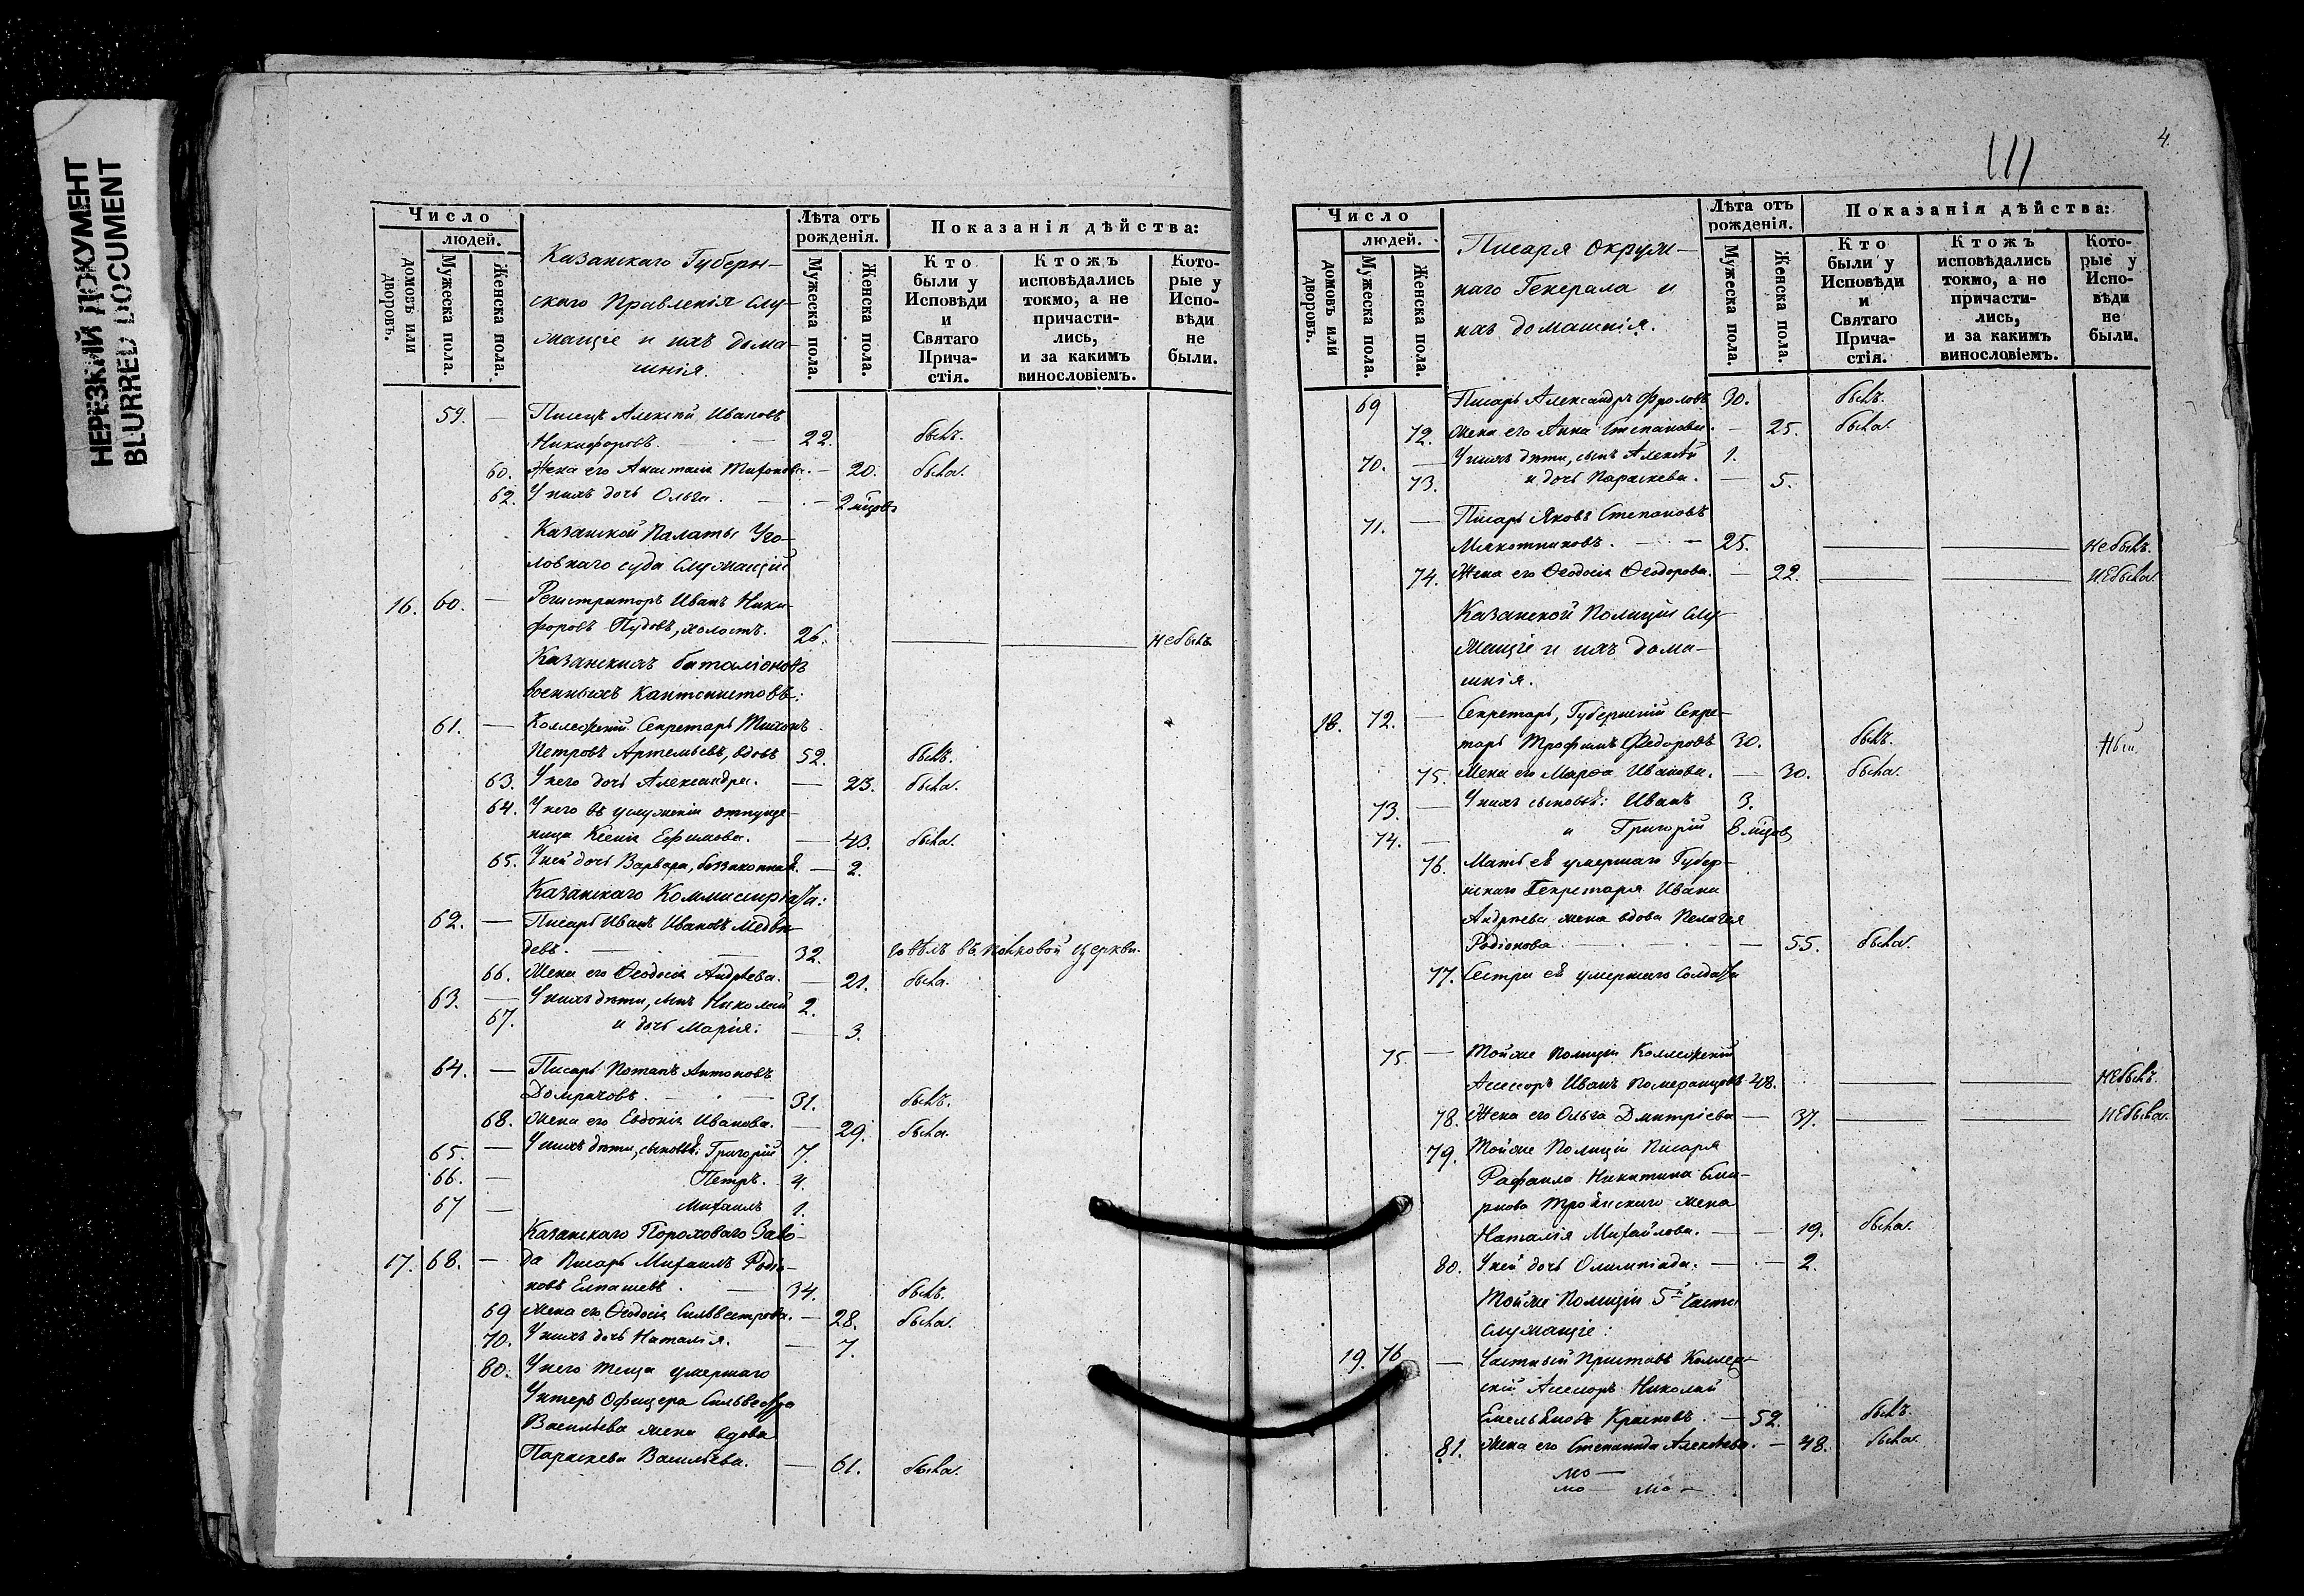 НЕРЕЗКИЙ ДОКУМЕНТ
BLURRED DOCUMENT
Число
людей.
домовъ или дворовъ.
Мужеска пола.
Женска пола.
Казанскаго Губерн-
скаго Правленія Слу-
жащіе и ихъ дома-
шнія.
Лѣта отъ рожденія.
Мужеска пола.
Женска пола.
Показанія дѣйства:
Кто были у Исповѣди и Святаго Прича-стія.
Ктожъ исповѣдались токмо, а не причасти-лись, и за какимъ винословіемъ.
Кото-рые у Испо-вѣди не были.
59. — Писецъ Алексѣй Ивановъ
Никифоровъ. — 22. былъ.
60. Жена его Анастасія — 20. была.
62. У нихъ дочь Ольга. — 2 мѣсяц.
Казанской Палаты Уго-
ловнаго суда Служащій
16. 60. — Регистраторъ Иванъ Ники-
форовъ Пудовъ, холостъ. 26. — — не былъ.
Казанскихъ баталіоновъ
военныхъ кантонистовъ:
61. — Коллежскій Секретарь Тихонъ
Петровъ Артемьевъ, вдовъ 52. былъ.
63. У него дочь Александра. — 23. была.
64. У него въ услуженіи отпуще-
ница Ксенія Ефимова. — 43. была.
65. У ней дочь Варвара, беззаконная. — 2.
Казанскаго Коммисаріата:
62. — Писарь Иванъ Ивановъ Медвѣ-
девъ. — 32. говѣлъ въ полковой церкви.
66. Жена его Ѳеодосія Андреева. — 21. была.
63. — У нихъ дѣти, сынъ Николай 2.
67. и дочь Марія: — 3.
64. — Писарь Потапъ Антоновъ
Домрачовъ. — 31. былъ.
68. Жена его Евдокія Иванова. — 29. была.
65. — У нихъ дѣти, сыновья: Григорій 7.
66. — Петръ. 4.
67 — Михаилъ 1.
Казанскаго Пороховаго Заво-
17. 68. — да Писарь Михаилъ Родіо-
новъ Елпашевъ. — 34. былъ.
69 Жена его Ѳеодосія Сильвестрова. — 28. была.
70. У нихъ дочь Наталія. — 7.
80. У него теща умершаго
Унтеръ Офицера Сильвестра
Васильева жена вдова
Параскева Васильева. — 61. была.
4.
Число
людей.
домовъ или дворовъ.
Мужеска пола.
Женска пола.
Писаря Окруж-
наго Генерала и
ихъ домашнія.
Лѣта отъ рожденія.
Мужеска пола.
Женска пола.
Показанія дѣйства:
Кто были у Исповѣди и Святаго Прича-стія.
Ктожъ исповѣдались токмо, а не причасти-лись, и за какимъ винословіемъ.
Кото-рые у Испо-вѣди не были.
69 Писарь Александръ Фроловъ 30. былъ.
72. Жена его Анна Степанова. — 25. была.
70. — У нихъ дѣти, сынъ Алексѣй 1.
73. и дочь Параскева. — 5.
71. — Писарь Яковъ Степановъ
Мякотниковъ. — 25. — — не былъ.
74. Жена его Ѳеодосія Ѳеодорова. — 22. — — не была.
Казанской Полиціи Слу-
жащіе и ихъ дома-
шнія.
18. 72. — Секретарь, Губернскій Секре-
тарь Трофимъ Ѳедоровъ 30. былъ.
75. Жена его Марѳа Иванова. — 30. была.
73. — У нихъ сыновья: Иванъ 3.
74. — и Григорій 8 мѣсяц.
76. Мать ея умершаго Губер-
нскаго Секретаря Ивана
Андреева жена вдова Пелагея
Родіонова — 55. была.
77. Сестра ея умершаго Солдата
75. — Тойже Полиціи Коллежскій
Асессоръ Иванъ Померанцовъ 48. — — не былъ.
78. Жена его Ольга Дмитріева — 37. — — не была.
79. Тойже Полиціи Писаря
Рафаила Никитина Сми-
рнова Троицкаго жена
Наталія Михайлова. — 19. была.
80. У ней дочь Олимпіада. — 2.
Тойже Полиціи 5й Части
служащіе:
19. 76 — Частный Приставъ Коллеж-
скій Асессоръ Николай
Емельяновъ Красновъ. — 52. былъ.
81. Жена его Степанида Алексѣева. — 48. была.